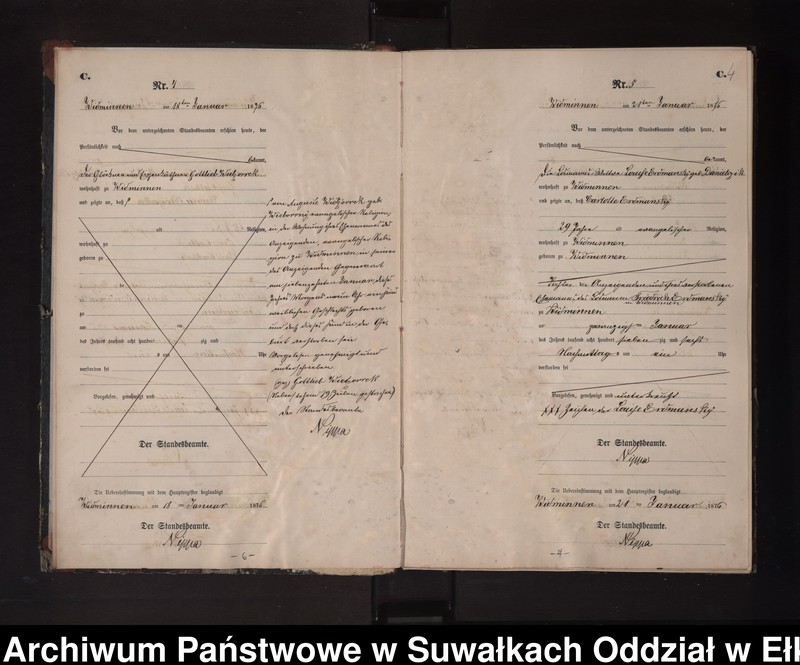 C.
Nr. 4
Widminnen am 18ten Januar 1876
Vor dem unterzeichneten Standesbeamten erschien heute, der
Persönlichkeit nach
bekannt,
Der Gottlieb
wohnhaft zu Widminnen
und zeigte an, daß
als Religion,
wohnhaft zu
geboren zu
zu
am ten
des Jahres tausend acht hundert zig und
um Uhr
verstorben sei
Vorgelesen, genehmigt und
Der Standesbeamte.
Die Uebereinstimmung mit dem Hauptregister beglaubigt
Widminnen am 18 ten Januar 1876
Der Standesbeamte.
Nippa
— 6 —
evangelischer Religion,
in der Wohnung ihres Ehemannes des
Anzeigenden, evangelischer Reli-
gion zu Widminnen in seiner
des Anzeigenden Gegenwart
am siebenzehnten Januar dieses
Jahres Morgens neun Uhr ein Kind
weiblichen Geschlechts geboren
und daß dieses Kind in der Ge-
burt verstorben sei
Vorgelesen genehmigt und
unterschrieben
(gez) Gottlieb
(Neben stehend 19 Zeilen gestrichen)
Der Standesbeamte
Nippa
C. 4
Nr. 5
Widminnen am 21ten Januar 1876
Vor dem unterzeichneten Standesbeamten erschien heute, der
Persönlichkeit nach
bekannt,
Die Louise Erdmansky geb Danielzik
wohnhaft zu Widminnen
und zeigte an, daß Carlotte Erdmansky
29 Jahre alt evangelischer Religion,
wohnhaft zu Widminnen
geboren zu Widminnen
Tochter der Anzeigenden und ihres verstorbenen
Ehemanns des Friedrich Erdmansky
in Widminnen
zu Widminnen
am zwanzigsten Januar
des Jahres tausend acht hundert sieben zig und sechs
Nachmittag s um ein Uhr
verstorben sei
Vorgelesen, genehmigt und unterkreuzt
††† Zeichen der Louise Erdmansky
Der Standesbeamte.
Nippa
Die Uebereinstimmung mit dem Hauptregister beglaubigt
Widminnen am 21 ten Januar 1876
Der Standesbeamte.
Nippa
Archiwum Państwowe w Suwałkach Oddział w Ełk